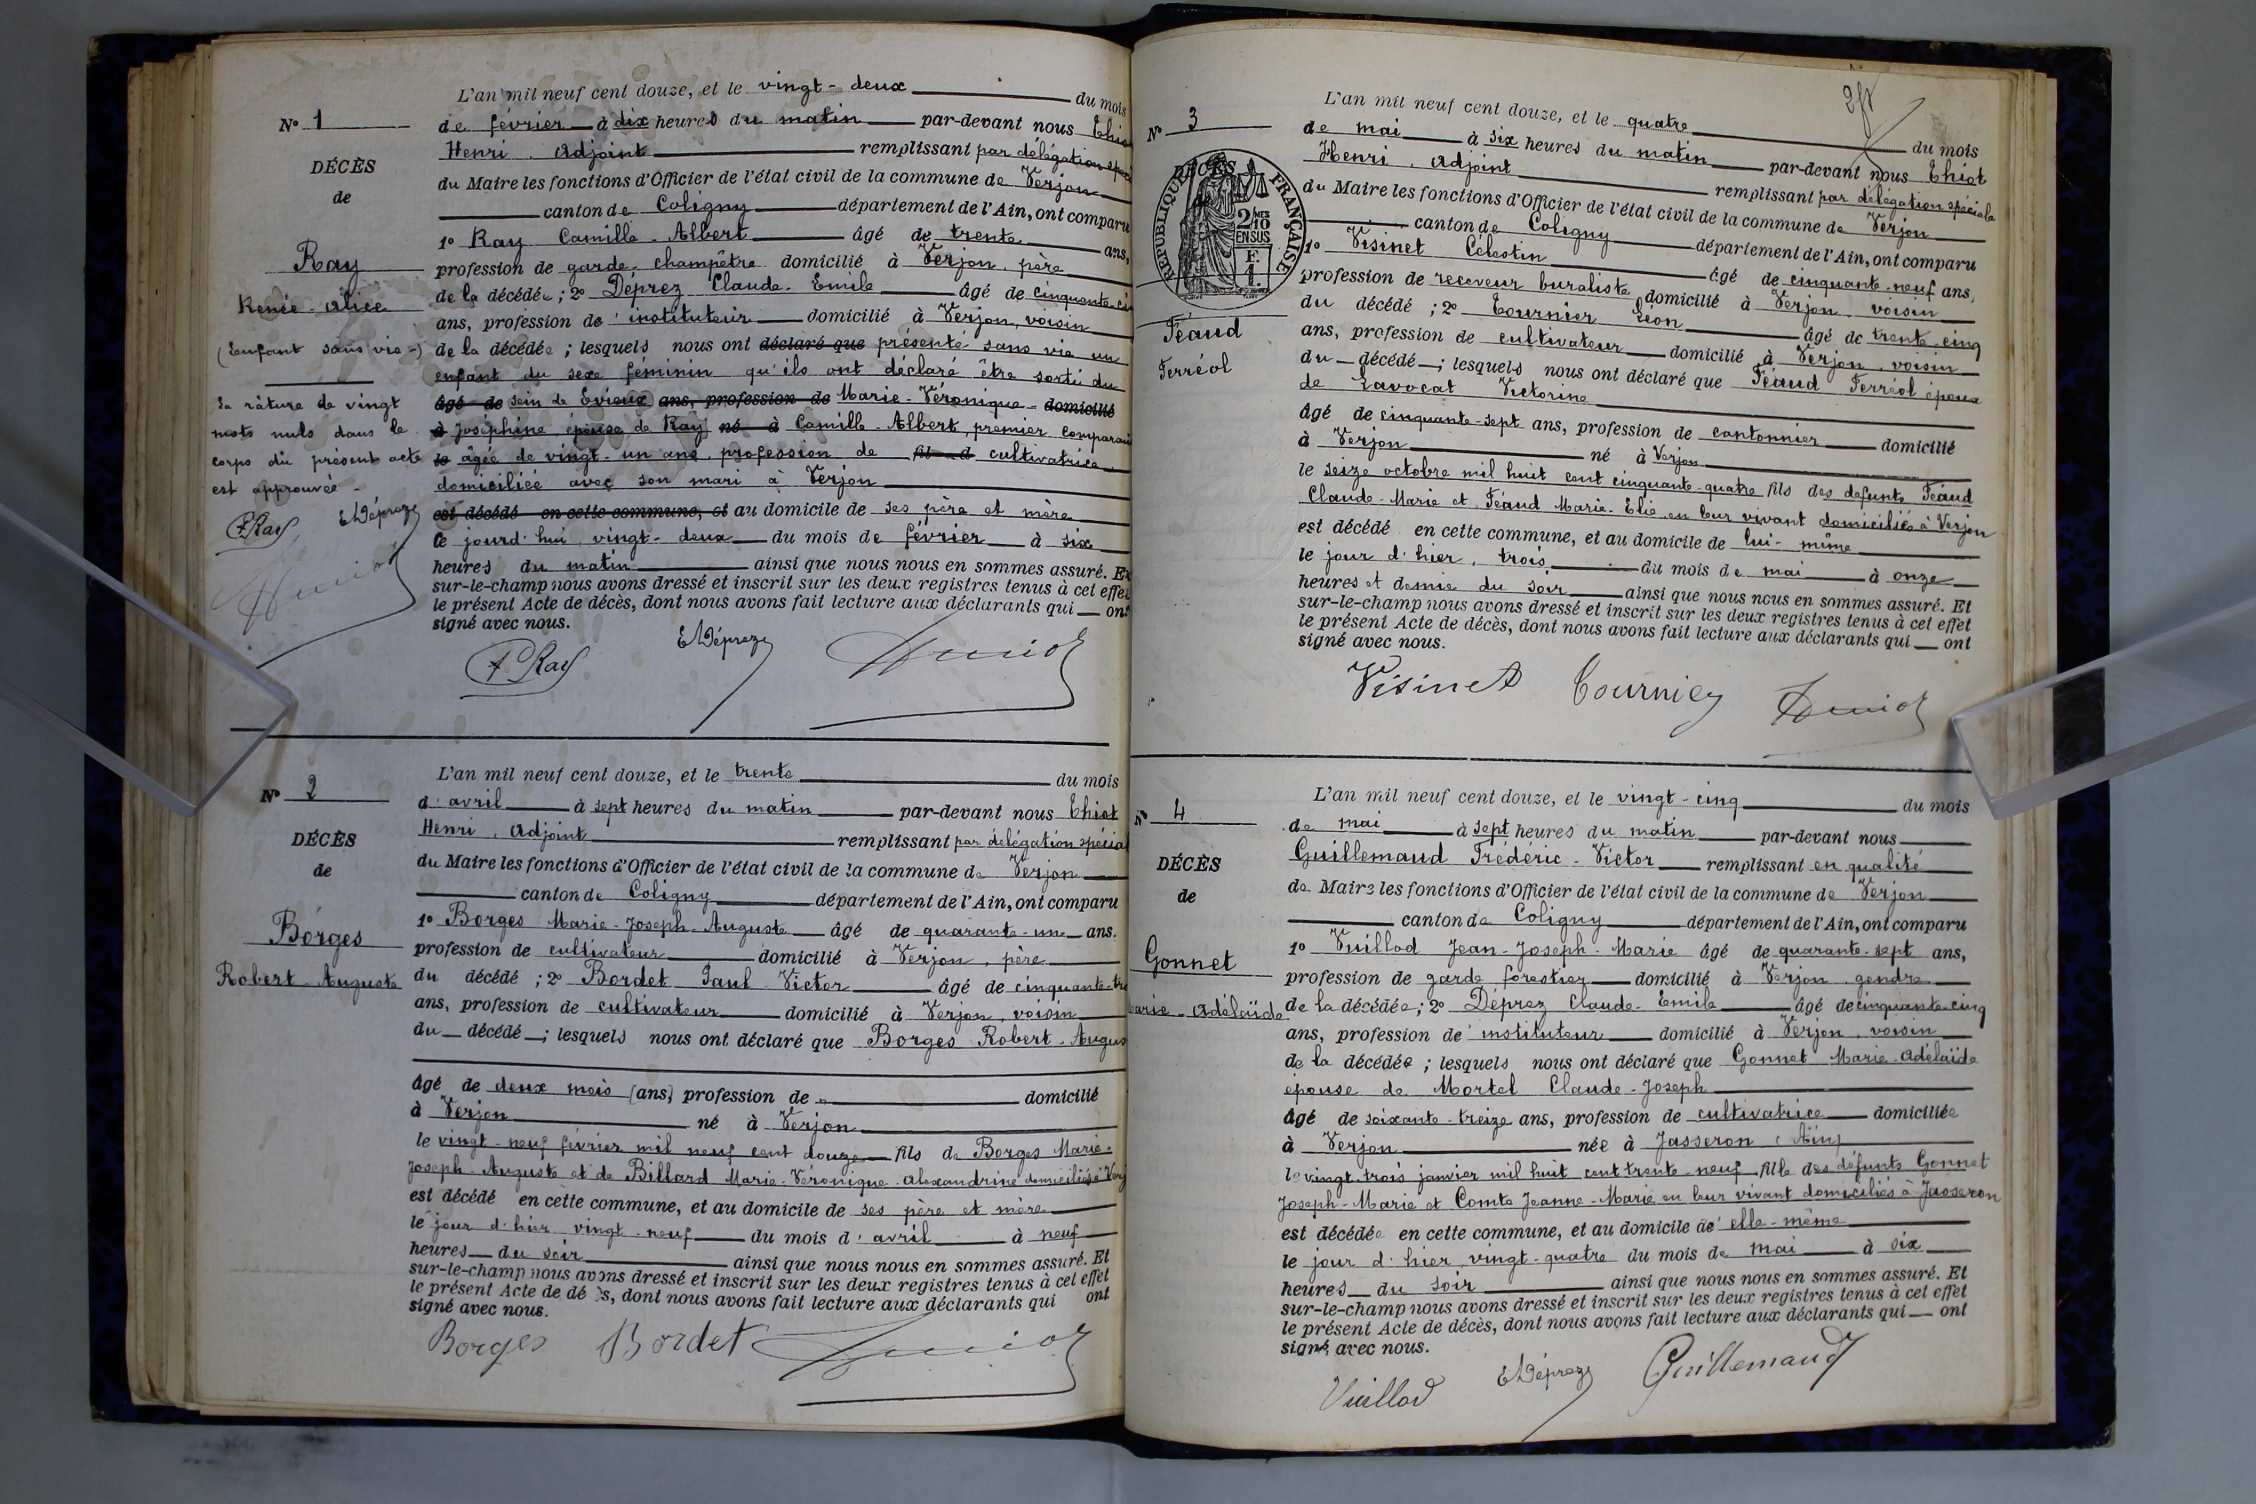 L'an mil neuf cent douze, et le vingt-deux du mois
Nº 1
de février à dix heures du matin par-devant nous Thiot
DÉCÈS
Henri, adjoint remplissant par délégation spéc
de
du Maire les fonctions d'Officier de l'état civil de la commune de Verjon
canton de Coligny département de l'Ain, ont comparu
Ray
1º Ray Camille-Albert âgé de trente ans,
profession de garde-champêtre domicilié à Verjon, père
Renée-Alice
de la décédée; 2º Déprez Claude-Emile âgé de cinquante-ci
ans, profession de instituteur domicilié à Verjon, voisin
(Enfant sans vie-)
de la décédée; lesquels nous ont déclaré que présenté sans vie un
enfant du sexe féminin qu'ils ont déclaré être sorti du
La râture de vingt
âgé de sein de Evieux ans, profession de Marie-Véronique- domicilié
mots nuls dans le
à Joséphine épouse de Ray né à Camille-Albert, premier comparai
corps du présent acte
le âgée de vingt-un ans, profession de fil d cultivatrice
est approuvée-
domiciliée avec son mari à Verjon
C Ray EDéprez
est décédé en cette commune, et au domicile de ses père et mère
ce jourd'hui vingt-deux du mois de février à six
heures du matin ainsi que nous nous en sommes assuré. Et
sur-le-champ nous avons dressé et inscrit sur les deux registres tenus à cet effet
le présent Acte de décès, dont nous avons fait lecture aux déclarants qui ont
signé avec nous.
C Ray EDéprez
L'an mil neuf cent douze, et le trente du mois
Nº 2
d'avril à sept heures du matin par-devant nous Thiot
DÉCÈS
Henri, adjoint remplissant par délégation spécial
de
du Maire les fonctions d'Officier de l'état civil de la commune de Verjon
canton de Coligny département de l'Ain, ont comparu
Borges
1º Borges Marie-Joseph-Auguste âgé de quarante-un ans.
profession de cultivateur domicilié à Verjon, père
Robert-Auguste
du décédé; 2º Bordet Paul-Victor âgé de cinquante-tr
ans, profession de cultivateur domicilié à Verjon, voisin
du décédé; lesquels nous ont déclaré que Borges Robert-Augus
âgé de deux mois (ans) profession de domicilié
à Verjon né à Verjon
le vingt-neuf février mil neuf cent douze fils de Borges Marie-
Joseph-Auguste et de Billard Marie-Véronique-Alexandrine domiciliés à Verj
est décédé en cette commune, et au domicile de ses père et mère
le jour d'hier vingt-neuf du mois d'avril à neuf
heures du soir ainsi que nous nous en sommes assuré. Et
sur-le-champ nous avons dressé et inscrit sur les deux registres tenus à cet effet
le présent Acte de dé s, dont nous avons fait lecture aux déclarants qui ont
signé avec nous.
Borges Bordet
2fr
L'an mil neuf cent douze, et le quatre du mois
Nº 3
de mai à six heures du matin par-devant nous Thiot
DÉCÈS
Henri, adjoint remplissant par délégation spéciale
RÉPUBLIQUE FRANÇAISE
2/10 MES EN SUS
F. 1.
du Maire les fonctions d'Officier de l'état civil de la commune de Verjon
canton de Coligny département de l'Ain, ont comparu
1º Visinet Célestin âgé de cinquante-neuf ans,
profession de receveur buraliste domicilié à Verjon, voisin
du décédé; 2º Tournier Léon âgé de trente-cinq
Féaud
ans, profession de cultivateur domicilié à Verjon, voisin
Ferréol
du décédé; lesquels nous ont déclaré que Féaud Ferréol époux
de Lavocat Victorine
âgé de cinquante-sept ans, profession de cantonnier domicilié
à Verjon né à Verjon
le seize octobre mil huit cent cinquante-quatre fils des défunts Féaud
Claude-Marie et Féaud Marie-Elie en leur vivant domiciliés à Verjon
est décédé en cette commune, et au domicile de lui-même
le jour d'hier, trois du mois de mai à onze
heures et demie du soir ainsi que nous nous en sommes assuré. Et
sur-le-champ nous avons dressé et inscrit sur les deux registres tenus à cet effet
le présent Acte de décès, dont nous avons fait lecture aux déclarants qui ont
signé avec nous.
Visinet Tournier
L'an mil neuf cent douze, et le vingt-cinq du mois
Nº 4
de mai à sept heures du matin par-devant nous
DÉCÈS
Guillemaud Frédéric-Victor remplissant en qualité
de
de Maire les fonctions d'Officier de l'état civil de la commune de Verjon
canton de Coligny département de l'Ain, ont comparu
Gonnet
1º Vuillod Jean-Joseph-Marie âgé de quarante-sept ans,
profession de garde forestier domicilié à Verjon gendre
arie-Adélaïde
de la décédée; 2º Déprez Claude-Emile âgé de cinquante-cinq
ans, profession de instituteur domicilié à Verjon, voisin
de la décédée; lesquels nous ont déclaré que Gonnet Marie-Adélaïde
épouse de Mortel Claude-Joseph
âgé de soixante-treize ans, profession de cultivatrice domiciliée
à Verjon née à Jasseron (Ain)
le vingt-trois janvier mil huit cent trente-neuf fille des défunts Gonnet
Joseph-Marie et Comte Jeanne-Marie en leur vivant domiciliés à Jasseron
est décédée en cette commune, et au domicile de elle-même
le jour d'hier vingt-quatre du mois de mai à six
heures du soir ainsi que nous nous en sommes assuré. Et
sur-le-champ nous avons dressé et inscrit sur les deux registres tenus à cet effet
le présent Acte de décès, dont nous avons fait lecture aux déclarants qui ont
signé avec nous.
Vuillod EDéprez Guillemaud